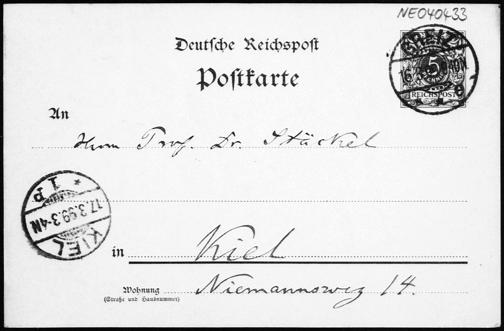 NE040433
Deutsche Reichspost
Postkarte
GREIZ
5
REICHSPOST
An
Herrn Prof. Dr. Stäckel
KIEL
17.3.99.3-4N
* 1 P *
in Kiel
Wohnung Niemannsweg 14.
(Straße und Hausnummer)